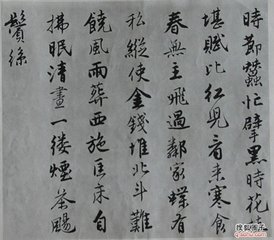 時節蠶忙擘黑時花
堪賦比紅兒看来寒食
春無主飛過鄰家蝶有
私縱使金錢堆北斗難
饒風雨葬西施匡床自
拂眠清晝一缕煙茶颺
鬢絲